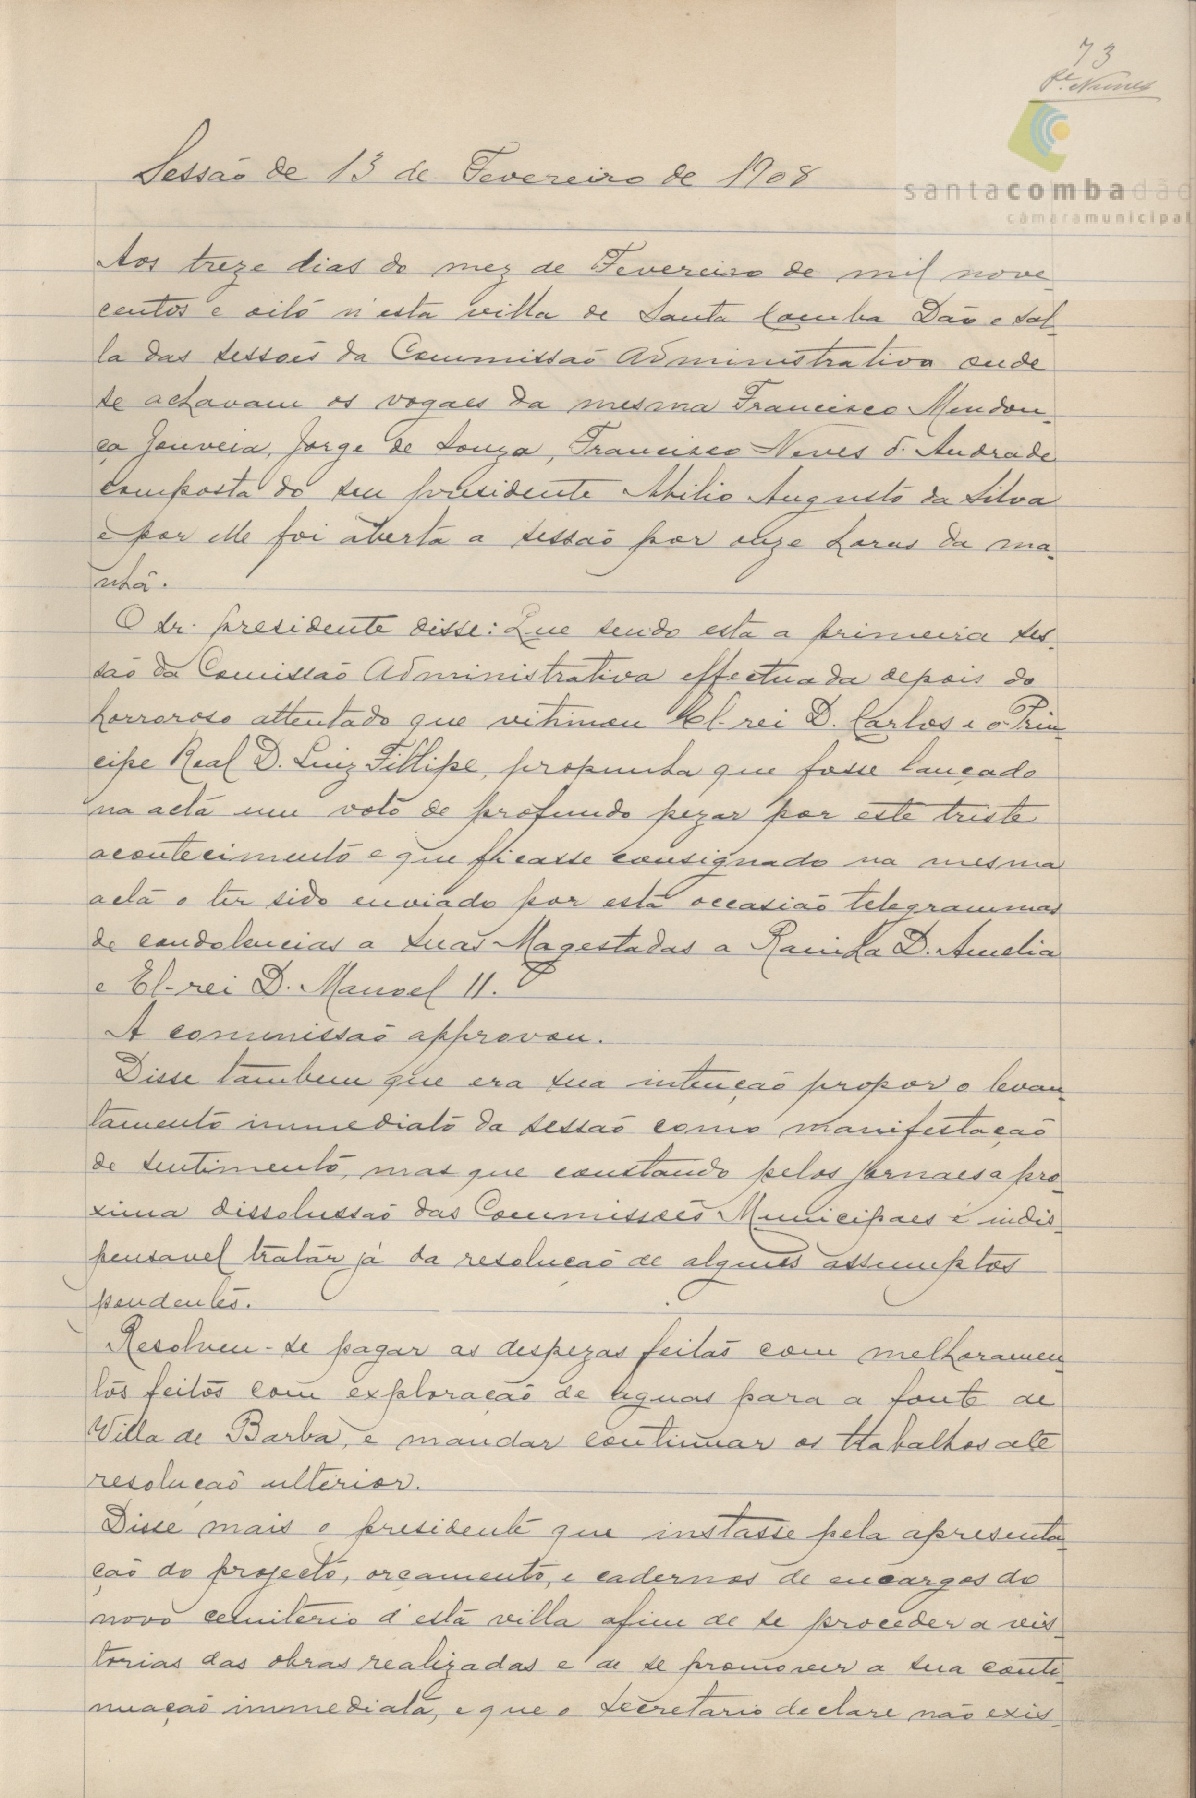 73
Nunes
santacombadão
câmaramunicipal
Sessão de 13 de Fevereiro de 1908
Aos treze dias do mez de Fevereiro de mil nove-
centos e oito n'esta villa de Santa Comba Dão e sal-
la das sessões da Commissão Administrativa onde
se achavam os vogaes da mesma Francisco Mendon-
ça Gouveia, Jorge de Souza, Francisco Neves d'Andrade
composta do seu presidente Abilio Augusto da Silva
e por elle foi aberta a sessão por onze horas da ma-
nhã.
O sr. presidente disse: Que sendo esta a primeira ses-
são da Comissão Administrativa effectuada depois do
horroroso attentado que vitimou El-rei D. Carlos e o Prin-
cipe Real D. Luiz Fillipe, propunha que fosse lançado
na acta um voto de profundo pezar por este triste
acontecimento e que ficasse consignado na mesma
acta o ter sido enviado por esta occasião telegrammas
de condolencias a suas Magestadas a Rainha D. Amelia
e El-rei D. Manoel II.
A commissão approvou.
Disse tambem que era sua intenção propor o levan-
tamento immediato da sessão como manifestação
de sentimento, mas que constando pelos jornaes a pro-
xima dissolussão das Commissões Municipaes é indis-
pensavel tratar já da resolução de alguns assumptos
pendentes.
Resolveu-se pagar as despezas feitas com melhoramen-
tos feitos com exploração de aguas para a fonte de
Villa de Barba, e mandar continuar os trabalhos até
resolução ulterior.
Disse mais o presidente que instasse pela apresenta-
ção do projecto, orçamento, e cadernos de encargos do
novo cemiterio d'esta villa afim de se proceder a vis-
torias das obras realizadas e de se promover a sua conti-
nuação immediata, e que o secretario declare não exis-